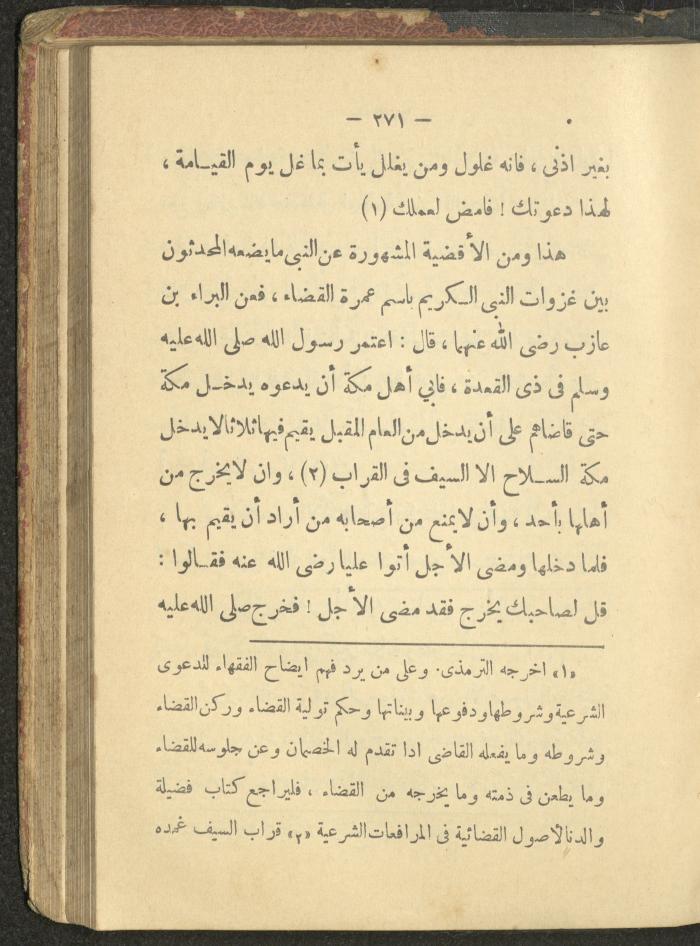 — ٢٧١ —
بغير اذنى ، فانه غلول ومن يغلل يأت بما غل يوم القيـامة ،
لهذا دعوتك ! فامض لعملك (١)
هذا ومن الأقضية المشهورة عن النبى مايضعه المحدثون
بين غزوات النبى الـكريم باسم عمرة القضاء ، فعن البراء بن
عازب رضى الله عنهما ، قال : اعتمر رسول الله صلى الله عليه
وسلم فى ذى القعدة ، فابي أهل مكة أن يدعوه يدخـل مكة
حتى قاضاهم على أن يدخل من العام المقبل يقيم فيها ثلاثا لا يدخل
مكة السـلاح الا السيف فى القراب (٢) ، وان لا يخرج من
أهلها بأحد ، وأن لا يمنع من أصحابه من أراد أن يقيم بها ،
فلما دخلها ومضى الأجل أتوا عليا رضى الله عنه فقـالوا :
قل لصاحبك يخرج فقد مضى الأجل ! فخرج صلى الله عليه
«١» اخرجه الترمذى. وعلى من يرد فهم ايضاح الفقهاء للدعوى
الشرعية وشروطها ودفوعها وبيناتها وحكم تولية القضاء وركن القضاء
وشروطه وما يفعله القاضى اذا تقدم له الخصمان وعن جلوسه للقضاء
وما يطعن فى ذمته وما يخرجه من القضاء ، فليراجع كتاب فضيلة
والدنا الأصول القضائية فى المرافعات الشرعية «٢» قراب السيف غمده